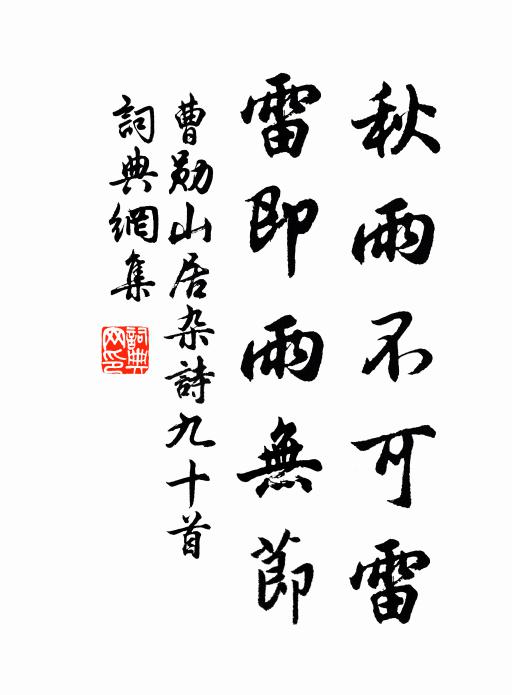 秋雨不可雷
雷即雨無節
曹勛山居杂詩九十首
詞典網集
詞典网印